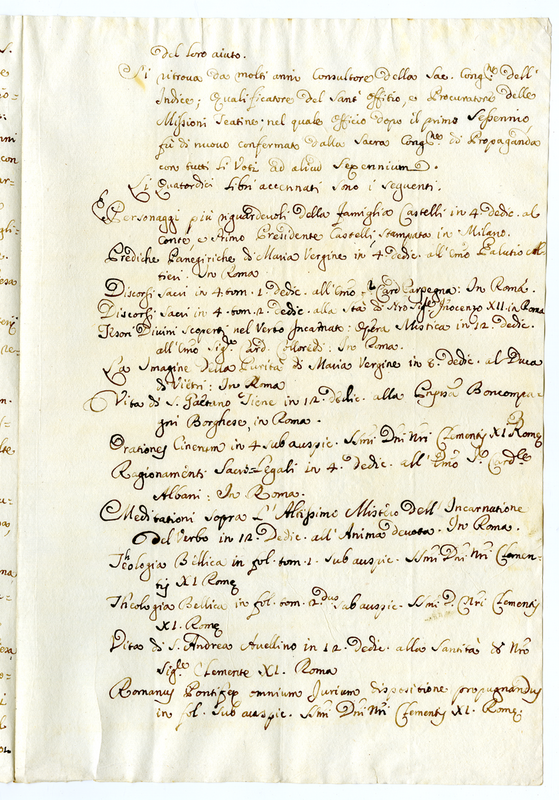 del loro aiuto.
Si ritrova da molti anni Consultore della Sac. Congne dell'
Indice; Qualificatore del Sant' Offitio, e Procuratore delle
Missioni Teatine: nel quale Officio dopo il primo Sessennio
fù di nuovo confermato dalla Sacra Congne di Propaganda
con tutti li Voti ad aliud Sexennium.
Li Quatordici libri accennati sono i seguenti.
Personaggi più riguardevoli della famiglia Castelli in 4. dedic. al
Conte, e Primo Presidente Castelli, Stampata in Milano.
Prediche Panegiriche di Maria Vergine in 4. dedic. all' Emo Palutio Al-
tieri. In Roma
Discorsi Sacri in 4. tom. 1. dedic. all' Emo Card. Carpegna: In Roma.
Discorsi Sacri in 4. tom. 2. dedic. alla Stà di Nro Sigre Inocenzo XII. in Roma
Tesori Divini scoperti nel Verbo Incarnato: Opera Mistica in 12. dedic.
all' Emo Sigr Card. Colloredi: In Roma.
La Imagine della Purità di Maria Vergine in 8. dedic. al Duca
di Vietri: In Roma
Vita di S. Gaetano Tiene in 12. Dedic. alla Boncompa-
gni Borghese, in Roma.
Orationes Cinerum in 4. sub auspic. SSmi Dni Nri Clementis XI Romę
Ragionamenti Sacro=Legali in 4. Dedic. all' Emo Sr. Cardle
Albani: In Roma.
Meditationi sopra l'Altissimo Mistero dell' Incarnatione
del Verbo in 12. Dedic. all' Anima devota. In Roma.
Theologia Bellica in fol. tom. 1. sub auspic. SSmi Dni Nri Clemen-
tis XI Romę
Theologia Bellica in fol. tom. 2.dus sub auspic. SSmi D. Nri Clementis
XI. Romę
Vita di S. Andrea Avellino in 12. Dedic. alla Santità di Nro
Sigre Clemente XI. Roma
Romanus Pontifex omnium Jurium dispositione propugnandus
in fol. sub auspic. SSmi Dni Nri Clementis XI. Romę.